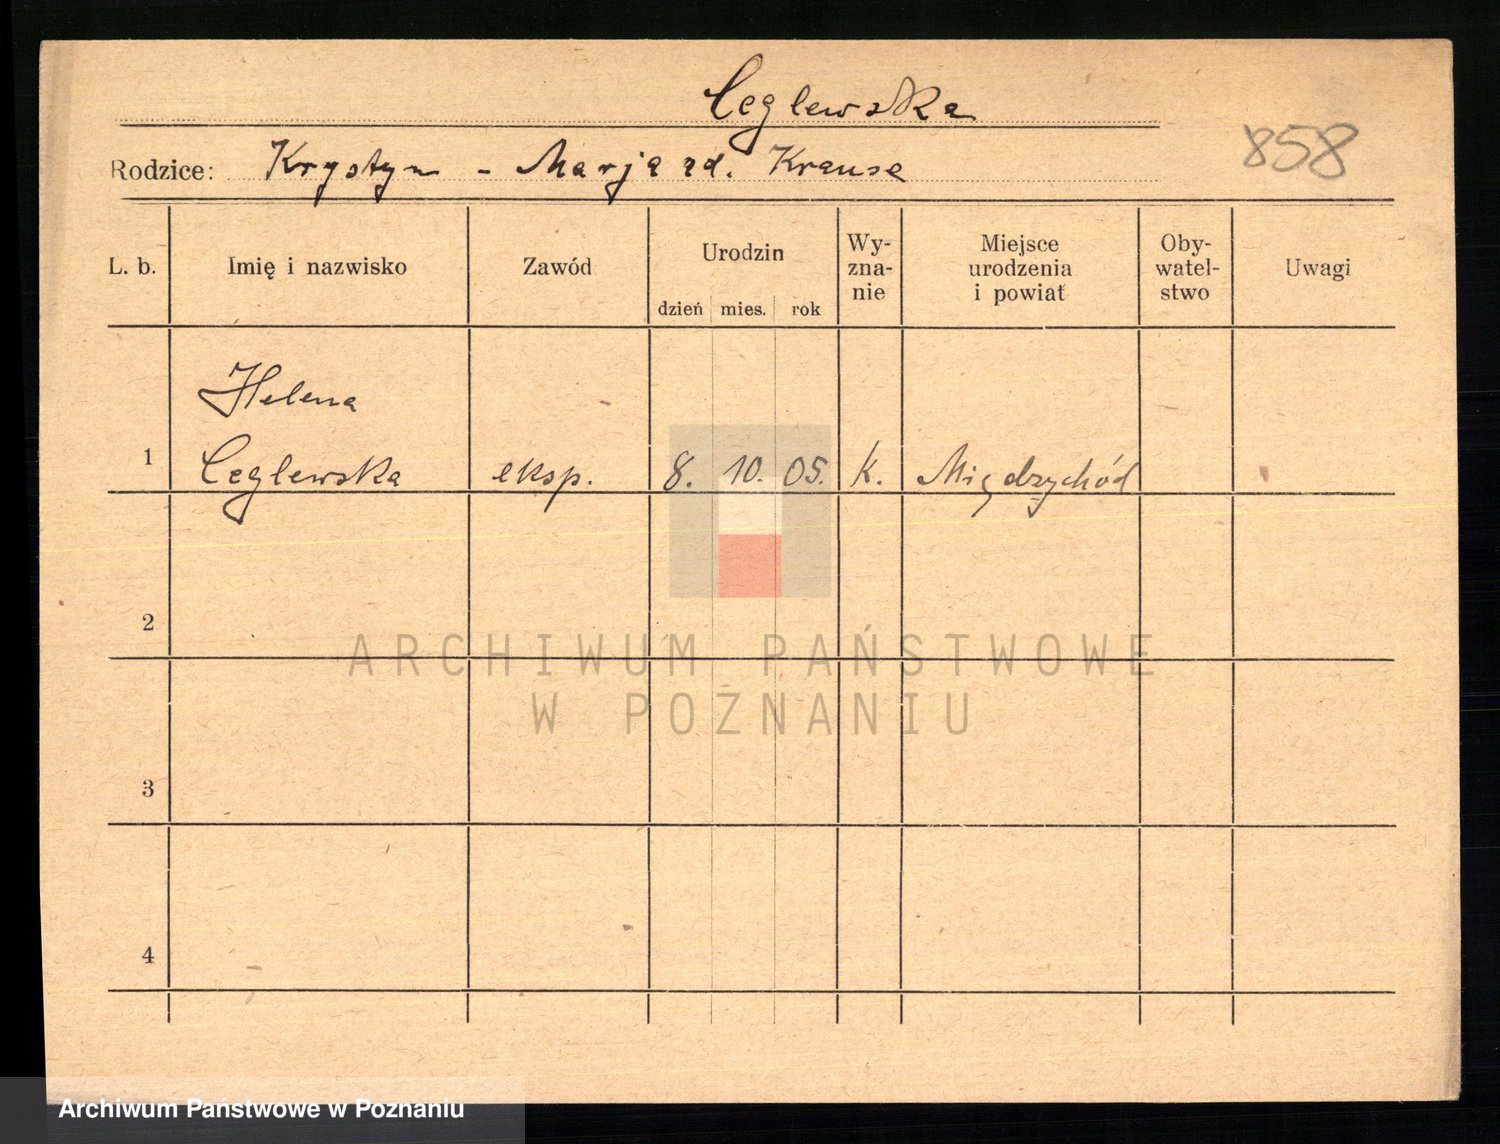 Ceglewska
858
Rodzice: Krystyn - Marja zd. Krause
L. b. Imię i nazwisko Zawód Urodzin dzień mies. rok Wy-zna-nie Miejsce urodzenia i powiat Oby-watel-stwo Uwagi
Helena
1 Ceglewska eksp. 8. 10. 05. k. Międzychód
2
ARCHIWUM PAŃSTWOWE
W POZNANIU
3
4
Archiwum Państwowe w Poznaniu